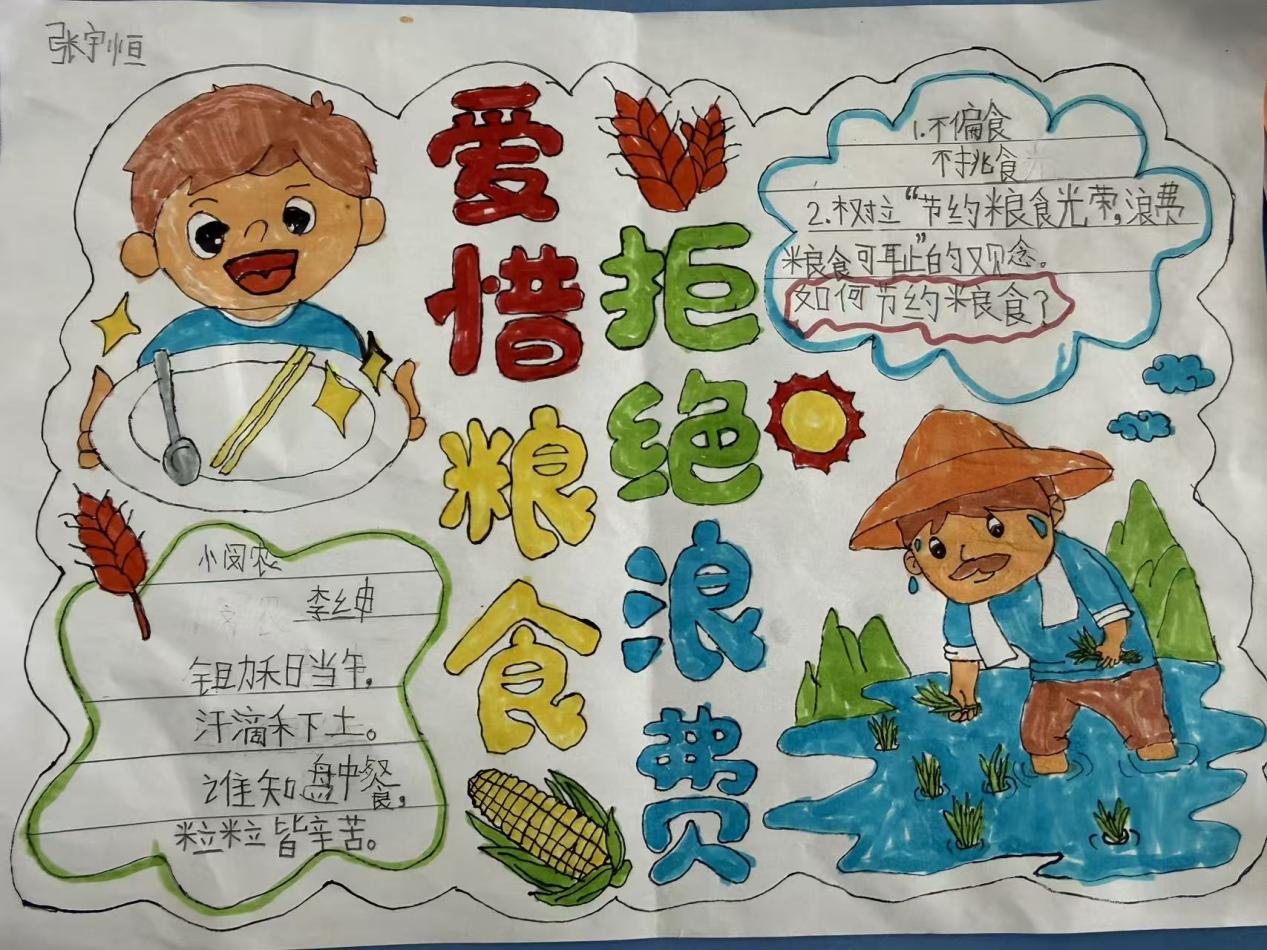 张宇恒
爱惜粮食
拒绝浪费
1.不偏食
不挑食
2.树立“节约粮食光荣,浪费
粮食可耻”的观念。
如何节约粮食?
悯农
李绅
锄禾日当午,
汗滴禾下土。
谁知盘中餐,
粒粒皆辛苦。